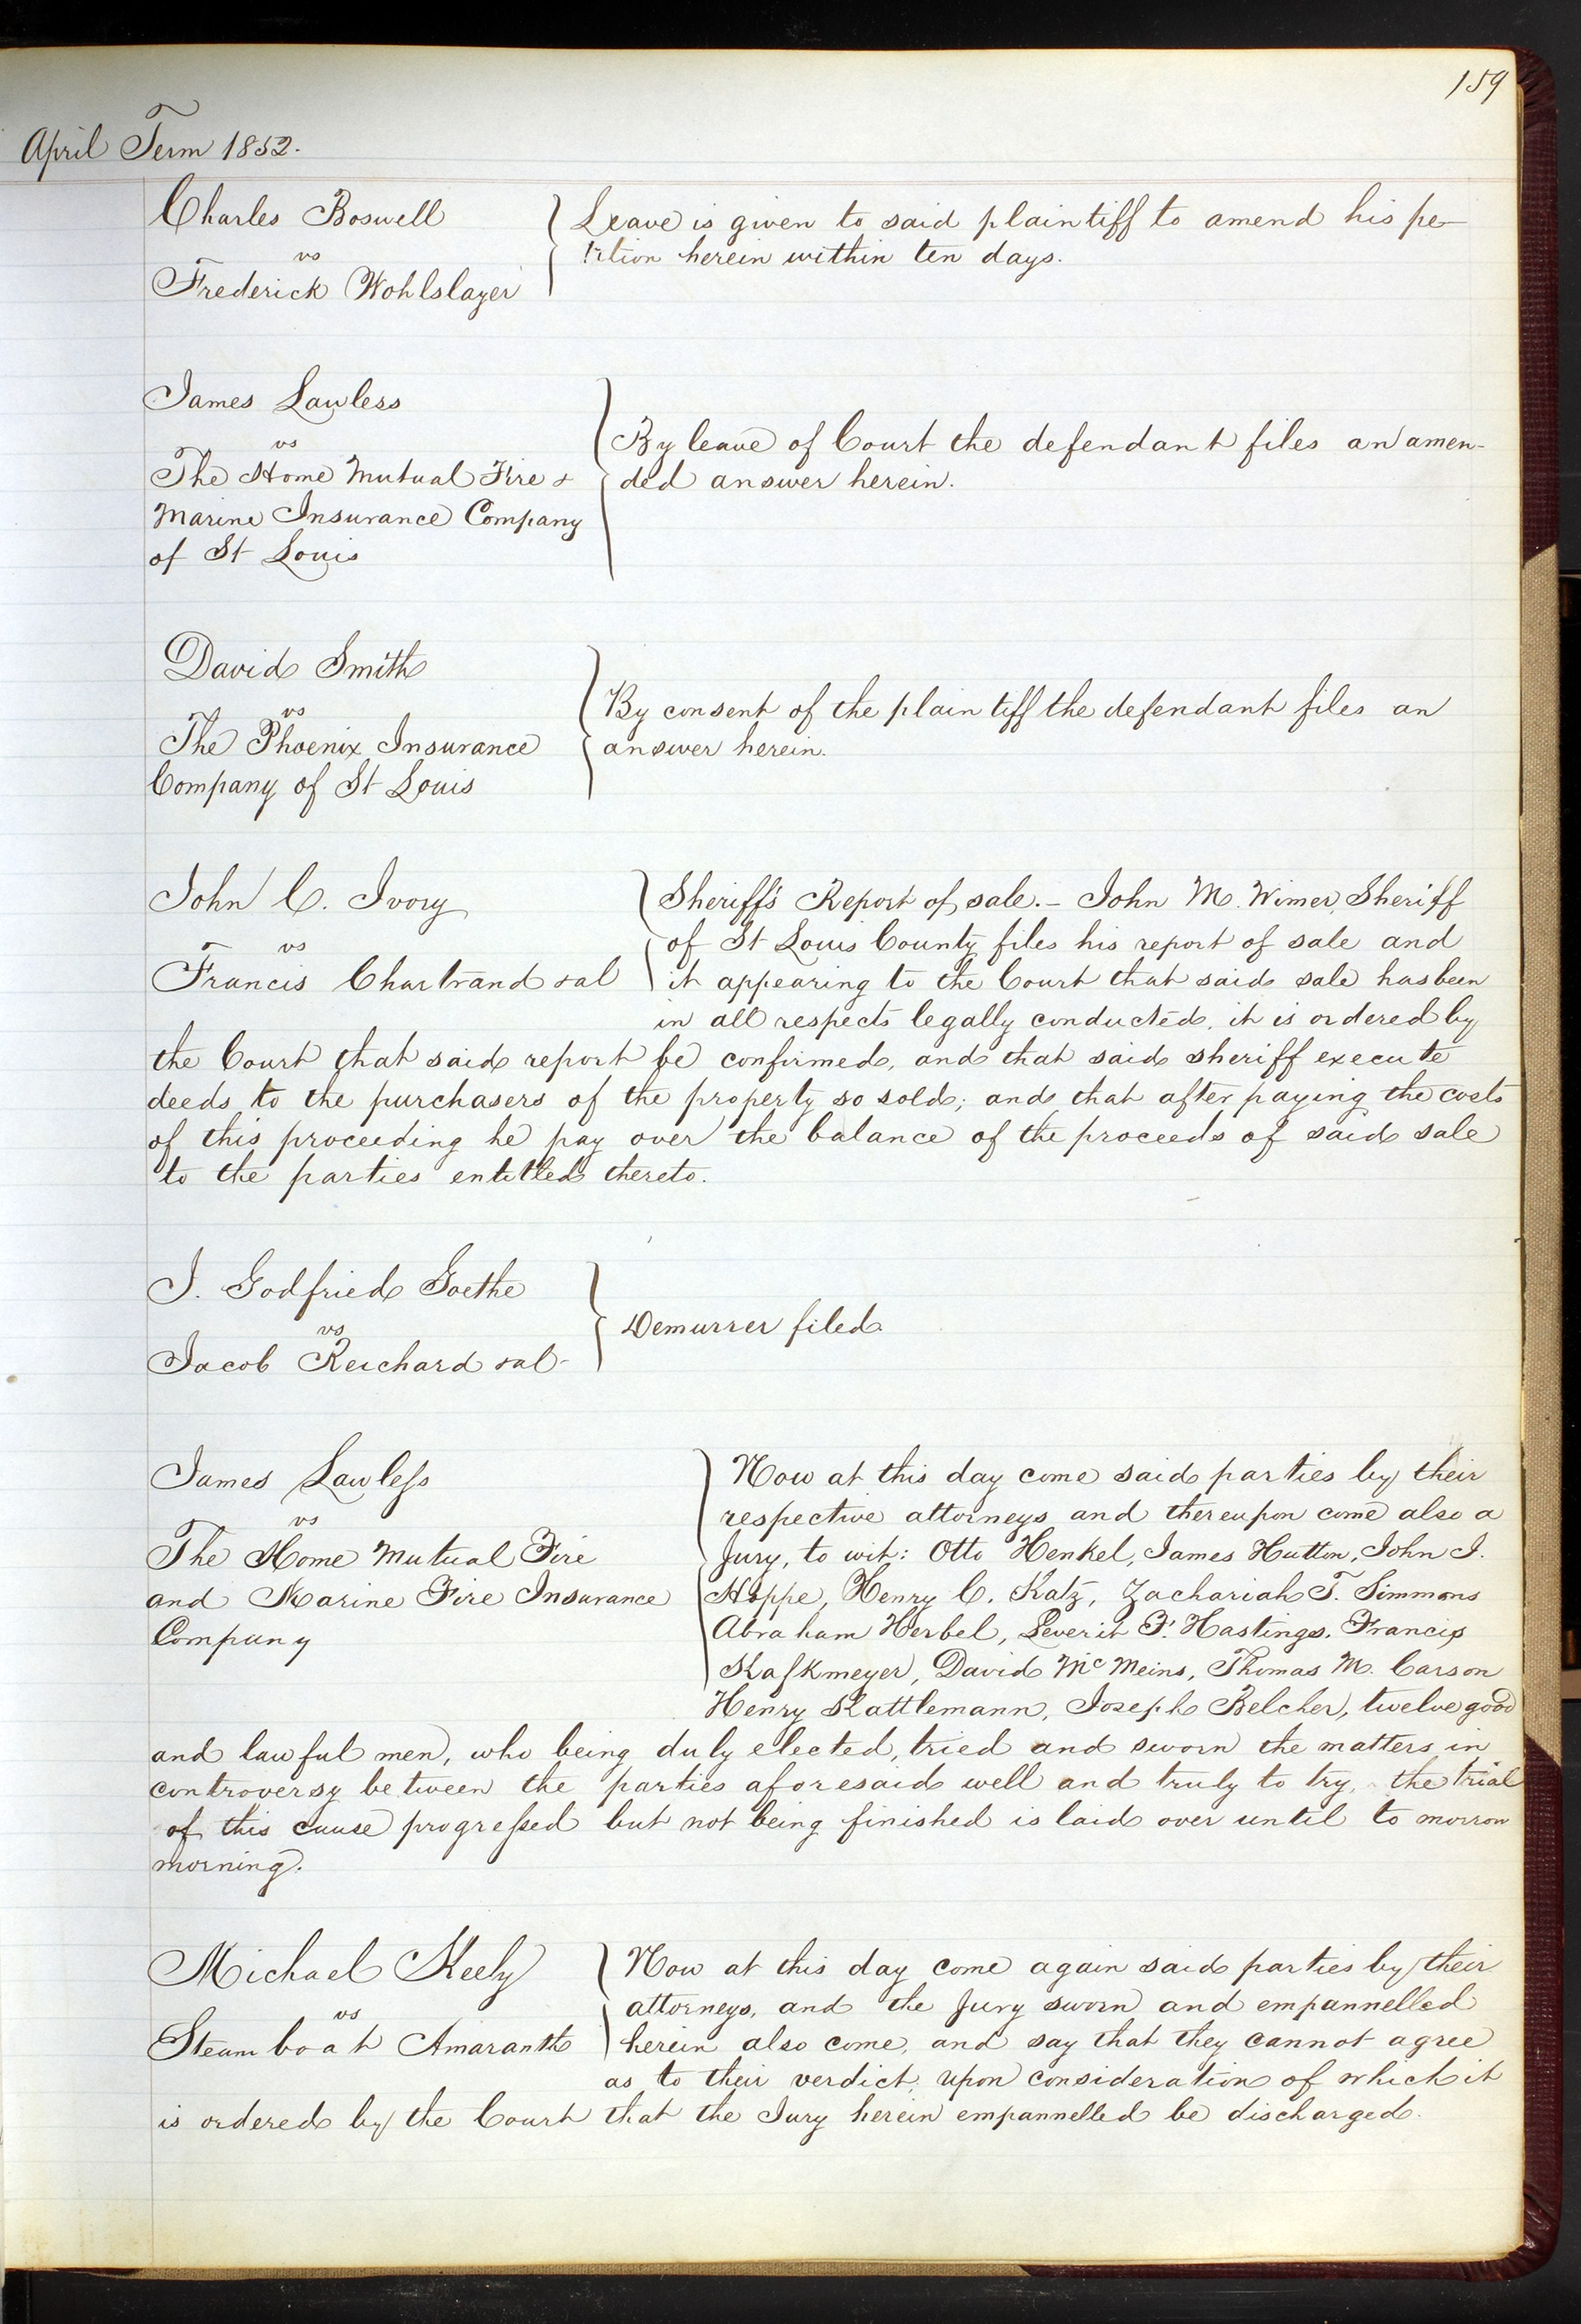 159
April Term 1852.
Charles Boswell
vs
Frederick Wohlslager
Leave is given to said plaintiff to amend his pe-
tition herein within ten days.
James Lawless
vs
The Home Mutual Fire &
Marine Insurance Company
of St Louis
By leave of Court the defendant files an amen-
ded answer herein.
David Smith
vs
The Phoenix Insurance
Company of St Louis
By consent of the plaintiff the defendant files an
answer herein.
John C. Ivory
vs
Francis Chartrand & al
Sheriff's Report of sale. – John M. Wimer, Sheriff
of St Louis County files his report of sale and
it appearing to the Court that said sale has been
in all respects legally conducted, it is ordered by
the Court that said report be confirmed, and that said sheriff execute
deeds to the purchasers of the property so sold; and that after paying the costs
of this proceeding he pay over the balance of the proceeds of said sale
to the parties entitled thereto.
J. Godfried Goethe
vs
Jacob Reichard & al-
Demurrer filed
James Lawless
vs
The Home Mutual Fire
and Marine Fire Insurance
Company
Now at this day come said parties by their
respective attorneys and thereupon come also a
Jury, to wit: Otto Henkel, James Hutton, John I.
Hoppe, Henry C. Katz, Zachariah T. Simmons
Abraham Herbel, Leverit F. Hastings, Francis
Kafkmeyer, David McMeins, Thomas M. Carson
Henry Kattlemann, Joseph Belcher, twelve good
and lawful men, who being duly elected, tried and sworn the matters in
controversy between the parties aforesaid well and truly to try, the trial
of this cause progressed but not being finished is laid over until to morrow
morning.
Michael Keely
vs
Steam boat Amaranth
Now at this day come again said parties by their
attorneys, and the Jury sworn and empannelled
herein also come, and say that they cannot agree
as to their verdict, upon consideration of which it
is ordered by the Court that the Jury herein empannelled be discharged.